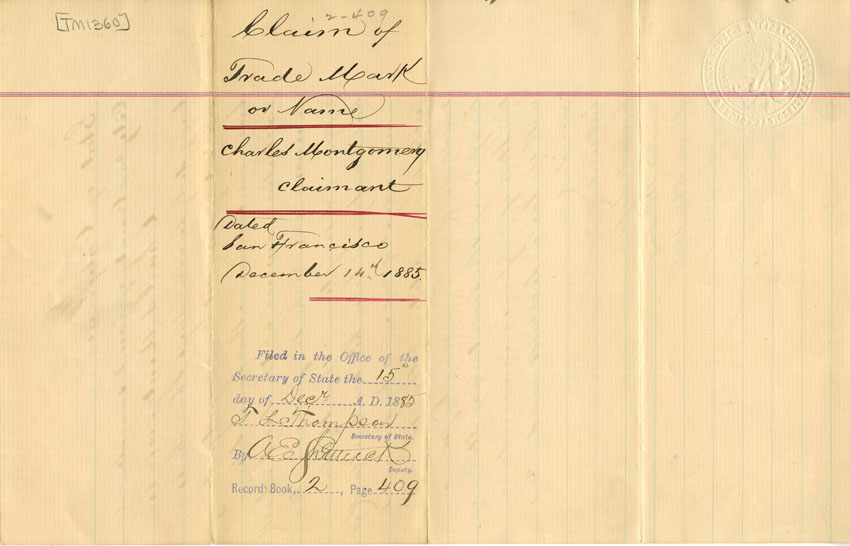 [TM1360]
2-409
Claim of
Trade Mark
or Name
Charles Montgomery
claimant
Dated
San Francisco
December 14th 1885.
Filed in the Office of the
Secretary of State the 15th
day of Decr A. D. 1885
T L Thompson
Secretary of State.
By A E Shattuck
Deputy.
Record Book, 2, Page 409